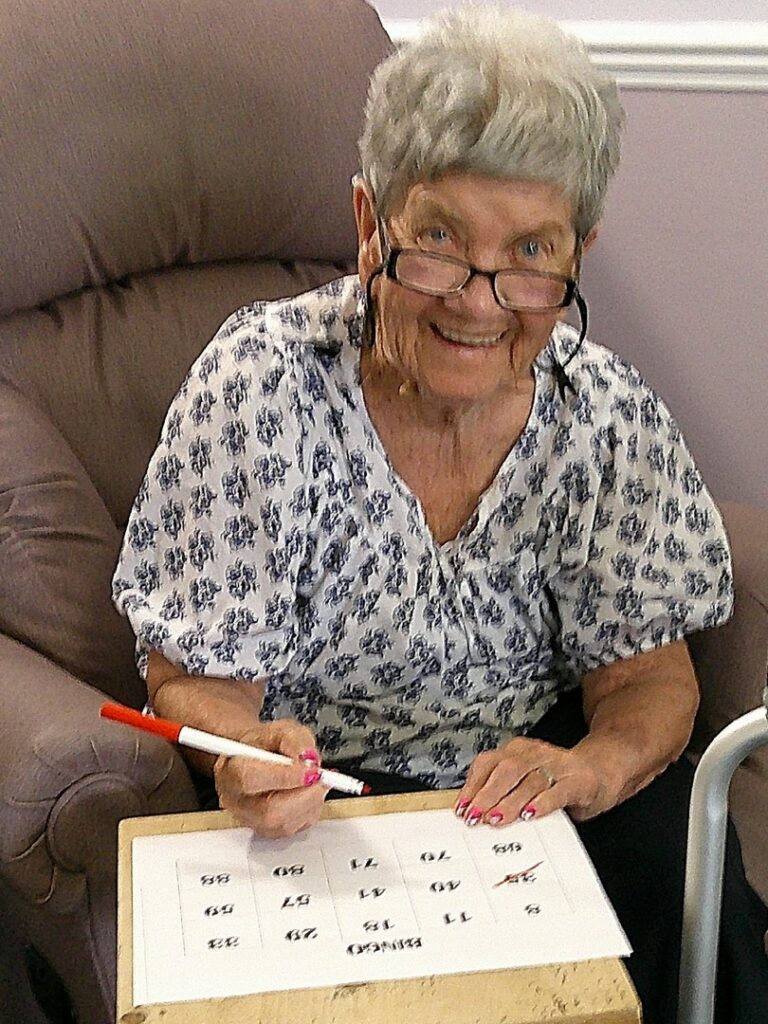 BINGO
8 11 18 29 33
35 40 41 57 59
70 71 80 88